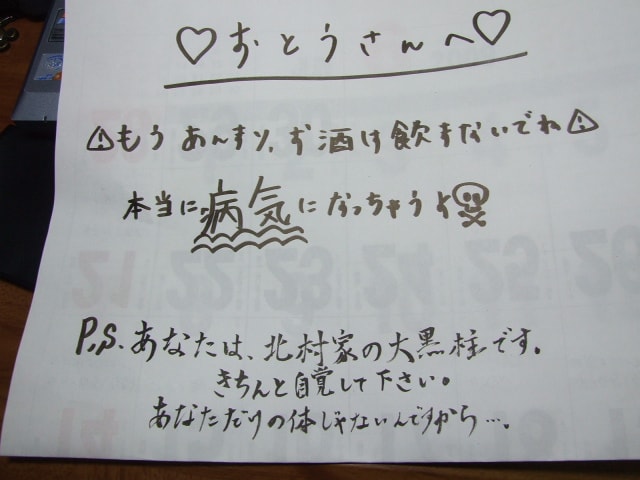 ♡おとうさんへ♡
⚠もうあんまり、お酒は飲まないでね⚠
本当に病気になっちゃうよ☠
P.S. あなたは、北村家の大黒柱です。
きちんと自覚して下さい。
あなただけの体じゃないんですから…。